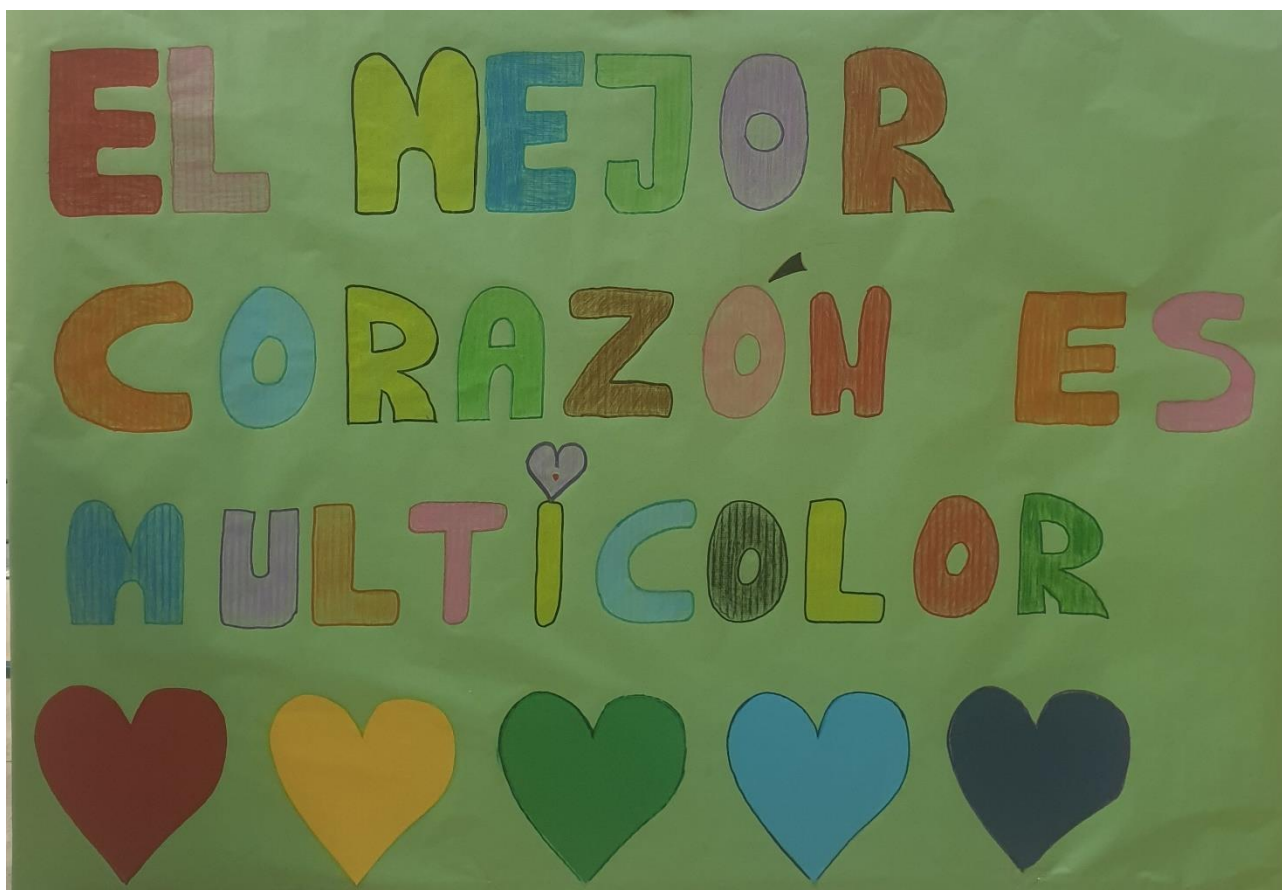 EL MEJOR
CORAZÓN ES
MULTICOLOR